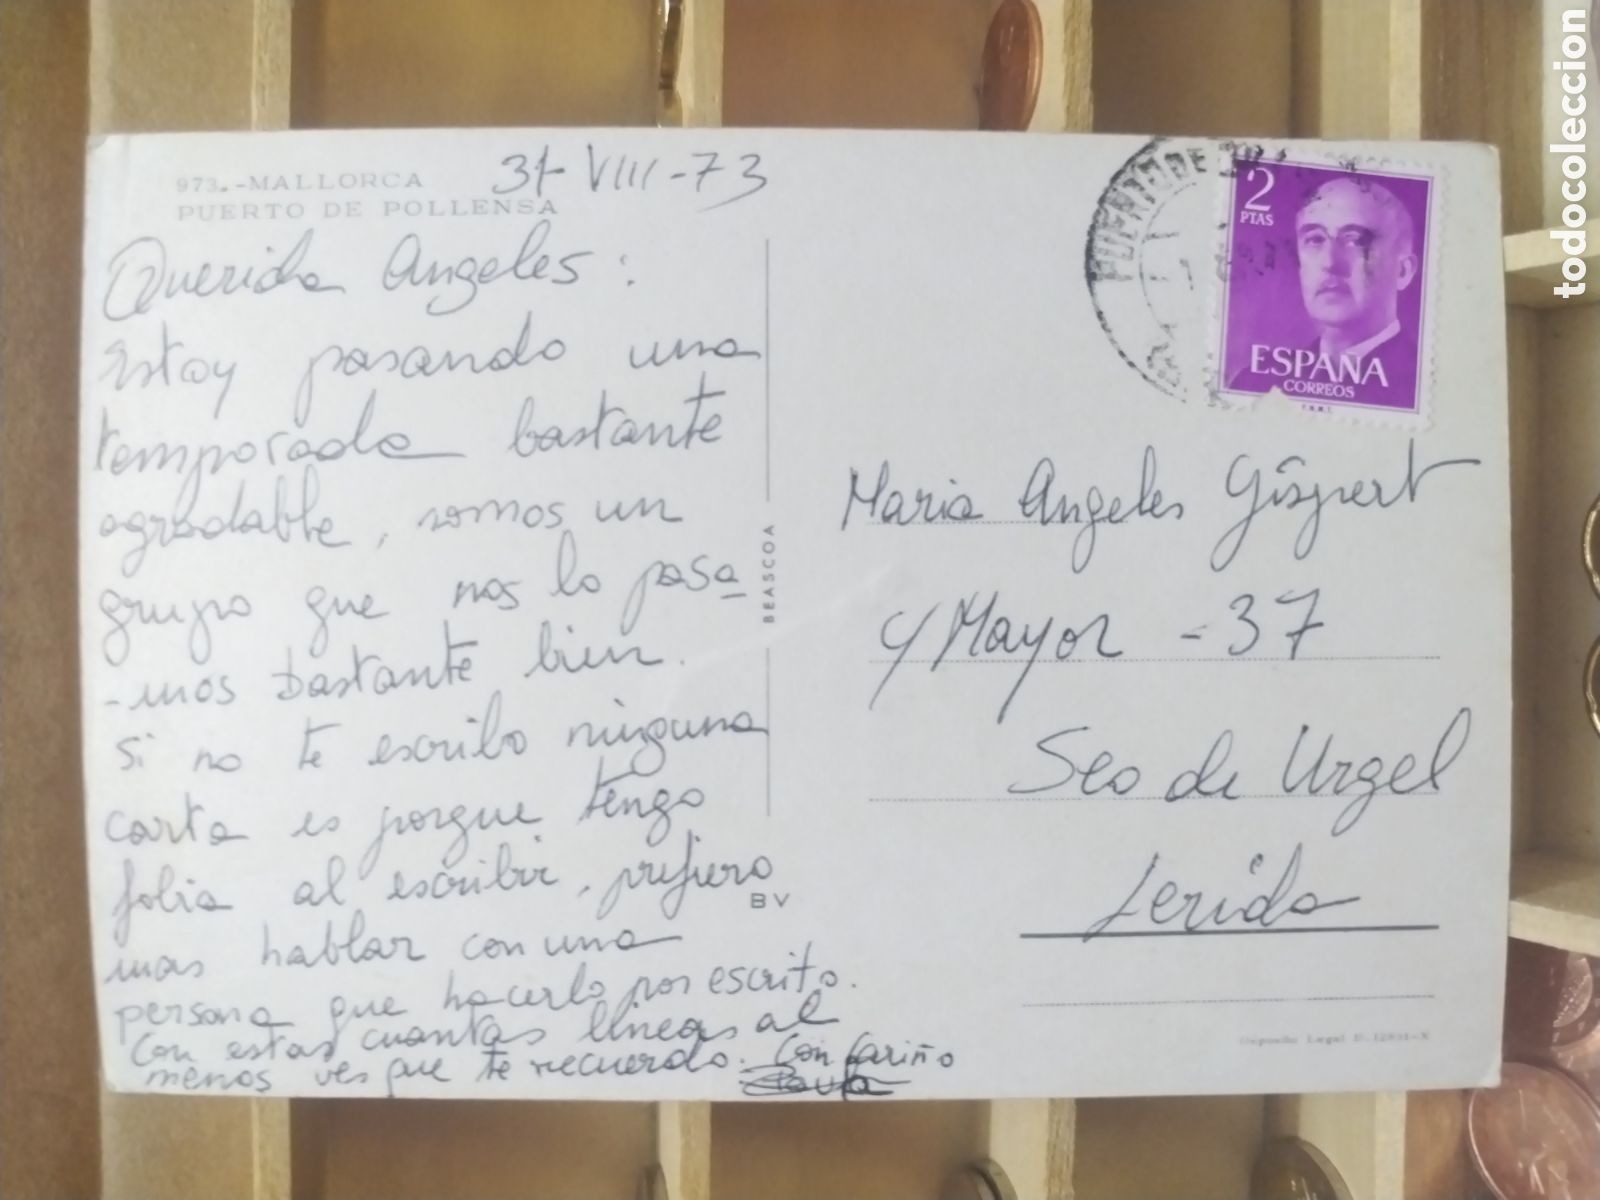 todocoleccion
973.-MALLORCA
PUERTO DE POLLENSA
31-VIII-73
Querida Angeles:
Estoy pasando una
temporada bastante
agradable, somos un
grupo que nos lo pasa
-mos bastante bien.
Si no te escribo ninguna
carta es porque tengo
fobia al escribir, prefiero
mas hablar con una
persona que hacerlo por escrito.
Con estas cuantas líneas al
menos ves que te recuerdo. Con cariño
BEASCOA
BV
PUERTO DE
2
PTAS
ESPAÑA
CORREOS
F.N.M.T.
Maria Angeles Gispert
C/ Mayor - 37
Seo de Urgel
Lerida
Depósito Legal B.